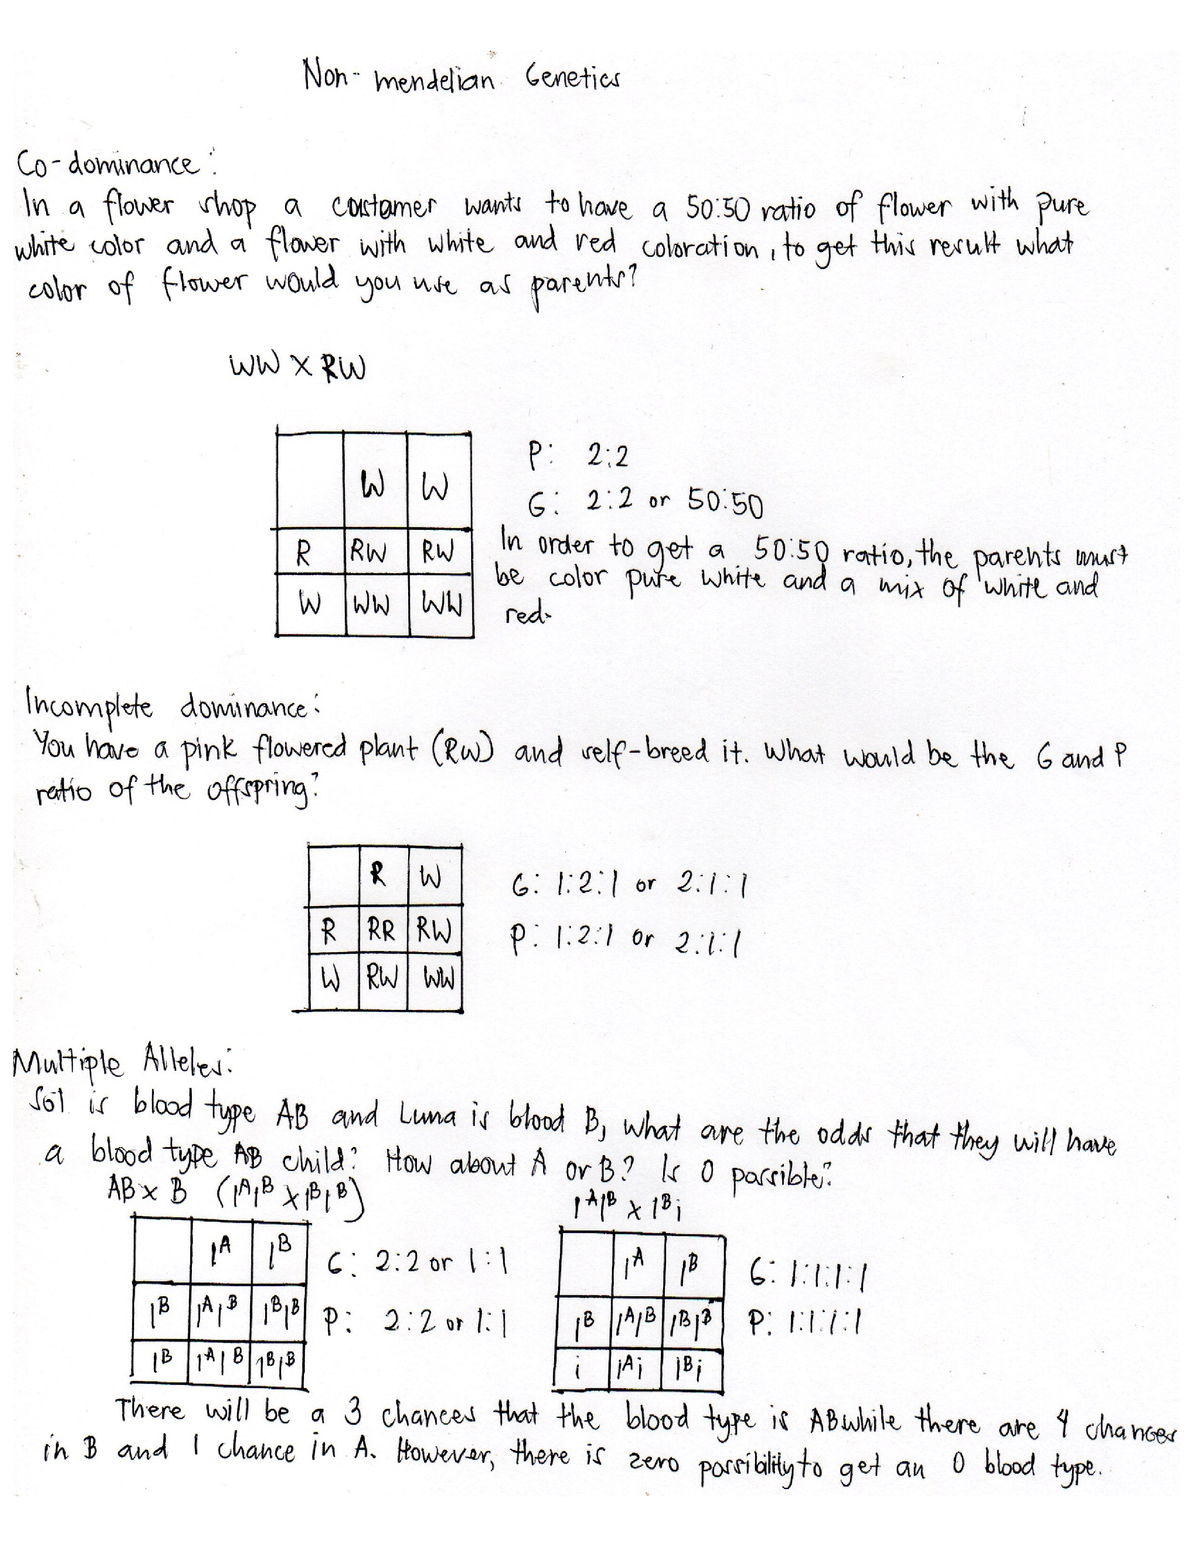 Non-mendelian Genetics
Co-dominance:
In a flower shop a costamer wants to have a 50:50 ratio of flower with pure
white color and a flower with white and red coloration, to get this result what
color of flower would you use as parents?
WW X RW
W W
R RW RW
W WW WW
P: 2:2
G: 2:2 or 50:50
In order to get a 50:50 ratio, the parents must
be color pure white and a mix of white and
red.
Incomplete dominance:
You have a pink flowered plant (RW) and self-breed it. What would be the G and P
ratio of the offspring?
R W
R RR RW
W RW WW
G: 1:2:1 or 2:1:1
P: 1:2:1 or 2:1:1
Multiple Alleles:
Sol is blood type AB and Luna is blood B, what are the odds that they will have
a blood type AB child? How about A or B? Is O possible?
AB x B (IᴬIᴮ x IᴮIᴮ)
Iᴬ Iᴮ
Iᴮ IᴬIᴮ IᴮIᴮ
Iᴮ IᴬIᴮ IᴮIᴮ
G: 2:2 or 1:1
P: 2:2 or 1:1
IᴬIᴮ x Iᴮi
Iᴬ Iᴮ
Iᴮ IᴬIᴮ IᴮIᴮ
i Iᴬi Iᴮi
G: 1:1:1:1
P: 1:1:1:1
There will be a 3 chances that the blood type is AB while there are 4 chances
in B and 1 chance in A. However, there is zero possibility to get an O blood type.